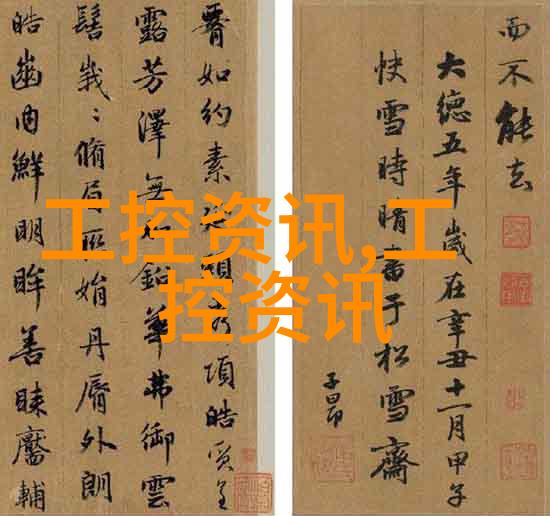 如約素延頸秀項皓質呈
露芳澤無加鉛華弗御雲
髻峩〻脩眉聯娟丹脣外朗
皓齒内鮮明眸善睞靨輔
而不能去
大德五年歲在辛丑十一月甲子
快雪時晴書于松雪齋
子昂
工控资讯,工
控资讯